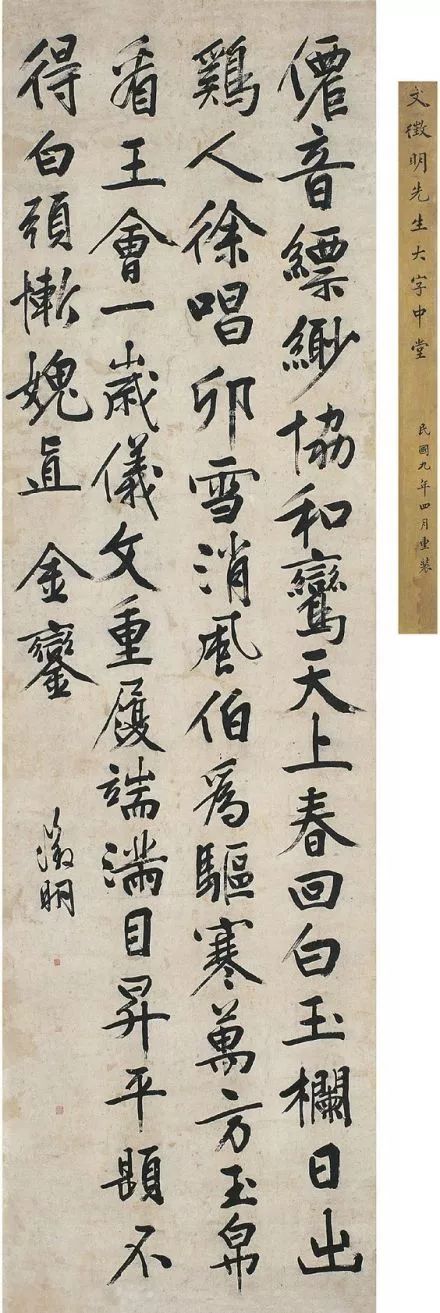 文徵明先生大字中堂
民國九年四月重裝
僊音縹緲協和鸞天上春回白玉欄日出
鷄人徐唱卯雪消風伯爲驅寒萬方玉帛
看王會一歲儀文重履端滿目昇平題不
得白頭慚媿直金鑾
徵明